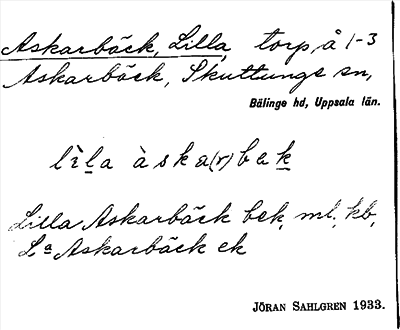 Askarbäck, Lilla, torp, å 1-3
Askarbäck, Skuttunge sn,
Bälinge hd, Uppsala län.
lìla àska(r)bäk
Lilla Askarbäck bek, ml, kb,
La Askarbäck ek
JÖRAN SAHLGREN 1933.